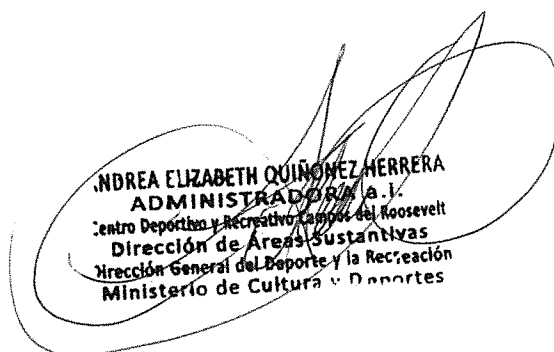 NDREA ELIZABETH QUIÑONEZ HERRERA
ADMINISTRADORA a.i.
entro Deportivo y Recreativo Campos del Roosevelt
Dirección de Áreas Sustantivas
irección General del Deporte y la Recreación
Ministerio de Cultura y Deportes